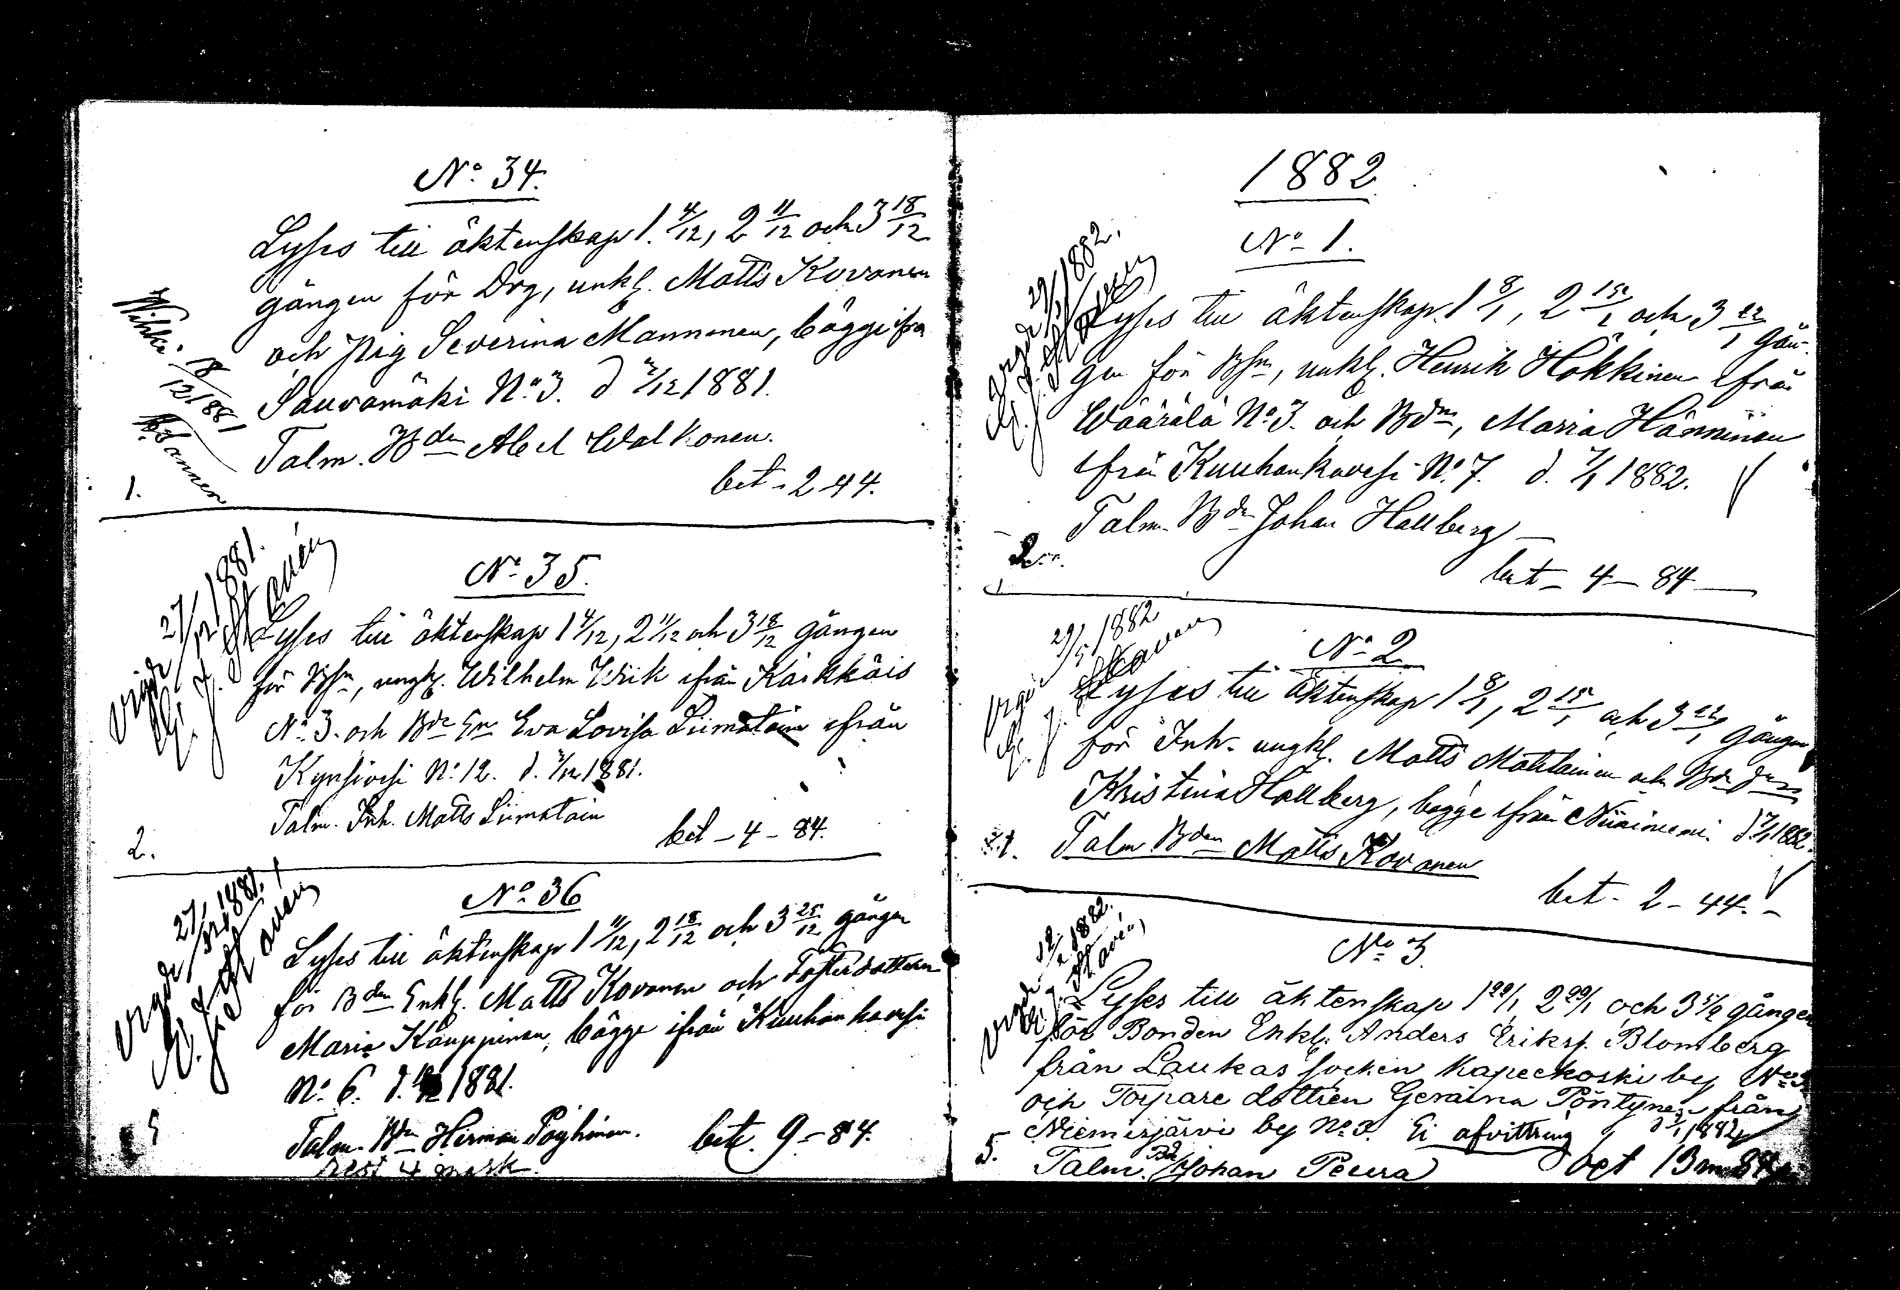 No 34.
Lyses till äktenskap 1. 4/12, 2 11/12 och 3 18/12
gången för Drg, unkl. Matts Kovanen
och Pig Severina Mannonen, bägge ifrå
Sauvamäki No 3. d 2/12 1881.
Talm. Bden Abel Walkonen.
bet - 2-44.
Wihki 18/12 1881
1.
No 35.
Vigde 27/12 1881.
Lyses till äktenskap 1 4/12, 2 11/12 och 3 18/12 gången
för Bsn, ungk. Wilhelm Wiik ifrån Kärkkäis
No 3. och Bde Enk Eva Lovisa Liimatain ifrån
Kynsivesi No 12. d. 3/12 1881.
Talm. Inh. Matts Liimatain
bet - 4 - 84.
2.
No 36
Vigde 27/12 1881.
Lyses till äktenskap 1 11/12, 2 18/12 och 3 25/12 gången
för Bden Enkl. Matts Kovanen och Fosterdottern
Maria Kauppinen, bägge ifrån Kuuhankavesi
No 6. d. 1881.
Talm. Bdn Herman Pöyhönen. bet. 9 - 84.
rest 4 mark.
5
1882
No 1.
Vigde 29/1 1882.
Lyses till äktenskap 1 8/1, 2 15/1 och 3 22/1 gån-
gen för Bsn, unkl. Henrik Häkkinen ifrån
Wäärälä No 3. och Bdm, Maria Hänninen
ifrån Kuuhankavesi No 7. d. 7/1 1882.
Talm. Bdn Johan Hallberg
bet - 4 - 84 -
2.
No 2
1882
Lyses till äktenskap 1 8/1, 2 15/1 och 3 22/1 gången
för Inh. ungkl. Matts Matilainen och Bde dn
Kristina Hallberg, begge ifrån Niinimeni. d 7/1 1882.
Talm Bden Matts Kovanen
bet - 2 - 44. -
1.
No 3.
Vigde 12/2 1882.
Lyses till äktenskap 1 22/1 2 29/1 och 3 5/2 gången
för Bonden Enkl. Anders Eriks. Blomberg
från Laukas socken Kapeekoski by No 3
och Torpare dottren Geraina Pöntynen från
Niemisjärvi by No 3. Ei afvittring 1882
5. Talm. Bd Johan Peura bet 13 m 84